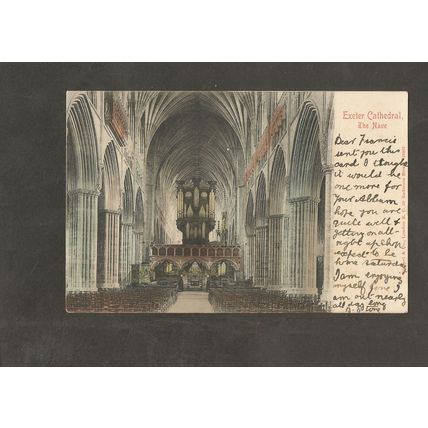 Exeter Cathedral,
The Nave
Dear Francis
sent you this
card I thought
it would be
one more for
Your Album
hope you are
quite well &
getting on all-
right up shop
expect to be
home saturday
I am enjoying
myself fine I
am out nearly
all day long